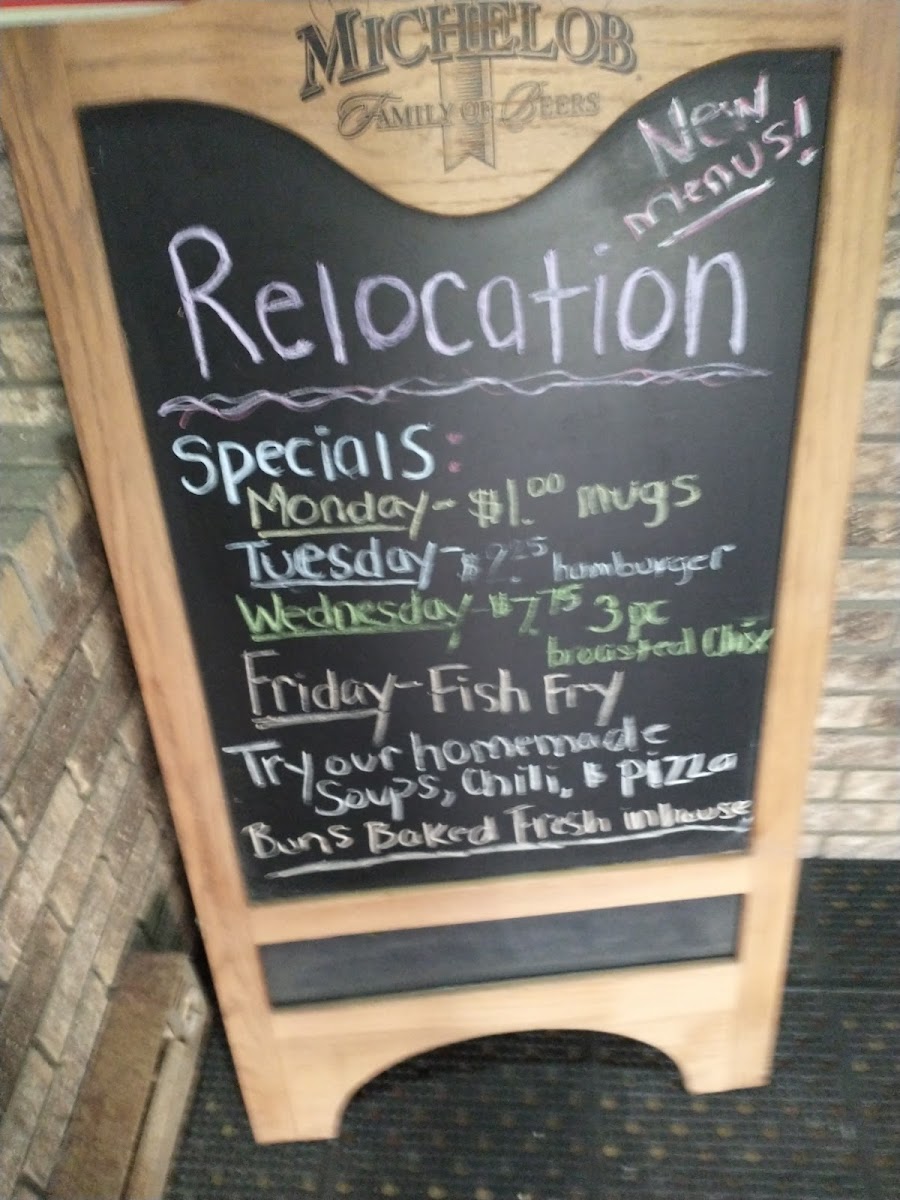 MICHELOB
FAMILY OF BEERS
New
menus!
Relocation
Specials:
Monday - $1.00 mugs
Tuesday - $2.25 hamburger
Wednesday - $7.75 3 pc
broasted Chix
Friday - Fish Fry
Try our homemade
Soups, Chili, & Pizza
Buns Baked Fresh inhouse